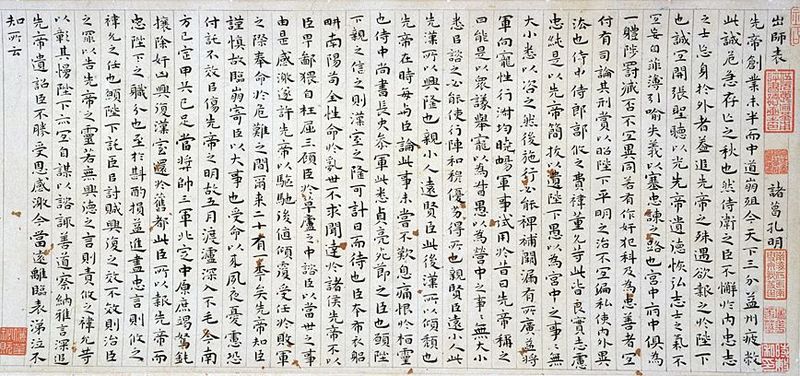 出師表　諸葛孔明
先帝創業未半而中道崩殂今天下三分益州疲敝
此誠危急存亡之秋也然侍衛之臣不懈於內忠志
之士忘身於外者蓋追先帝之殊遇欲報之於陛下
也誠宜開張聖聽以光先帝遺德恢弘志士之氣不
宜妄自菲薄引喻失義以塞忠諫之路也宮中府中俱為
一體陟罰臧否不宜異同若有作奸犯科及為忠善者宜
付有司論其刑賞以昭陛下平明之治不宜偏私使內外異
法也侍中侍郎郭攸之費禕董允等此皆良實志慮
忠純是以先帝簡拔以遺陛下愚以為宮中之事事無
大小悉以咨之然後施行必能裨補闕漏有所廣益將
軍向寵性行淑均曉暢軍事試用於昔日先帝稱之
曰能是以眾議舉寵以為督愚以為營中之事事無大小
悉以諮之必能使行陣和穆優劣得所也親賢臣遠小人此
先漢所以興隆也親小人遠賢臣此後漢所以傾頹也
先帝在時每與臣論此事未嘗不歎息痛恨於桓靈
也侍中尚書長史參軍此悉貞亮死節之臣也願陛
下親之信之則漢室之隆可計日而待也臣本布衣躬
耕南陽苟全性命於亂世不求聞達於諸侯先帝不以
臣卑鄙猥自枉屈三顧臣於草廬之中諮臣以當世之事
由是感激遂許先帝以驅馳後值傾覆受任於敗軍
之際奉命於危難之間爾來二十有一年矣先帝知臣
謹慎故臨崩寄臣以大事也受命以來夙夜憂慮恐
付託不效以傷先帝之明故五月渡瀘深入不毛今南
方已定甲兵已足當獎帥三軍北定中原庶竭駑鈍
攘除奸凶興復漢室還於舊都此臣所以報先帝而
忠陛下之職分也至於斟酌損益進盡忠言則攸之
禕允之任也願陛下託臣以討賊興復之效不效則治臣
之罪以告先帝之靈若無興德之言則責攸之禕允等
以彰其慢陛下亦宜自謀以諮諏善道察納雅言深追
先帝遺詔臣不勝受恩感激今當遠離臨表涕泣不
知所云